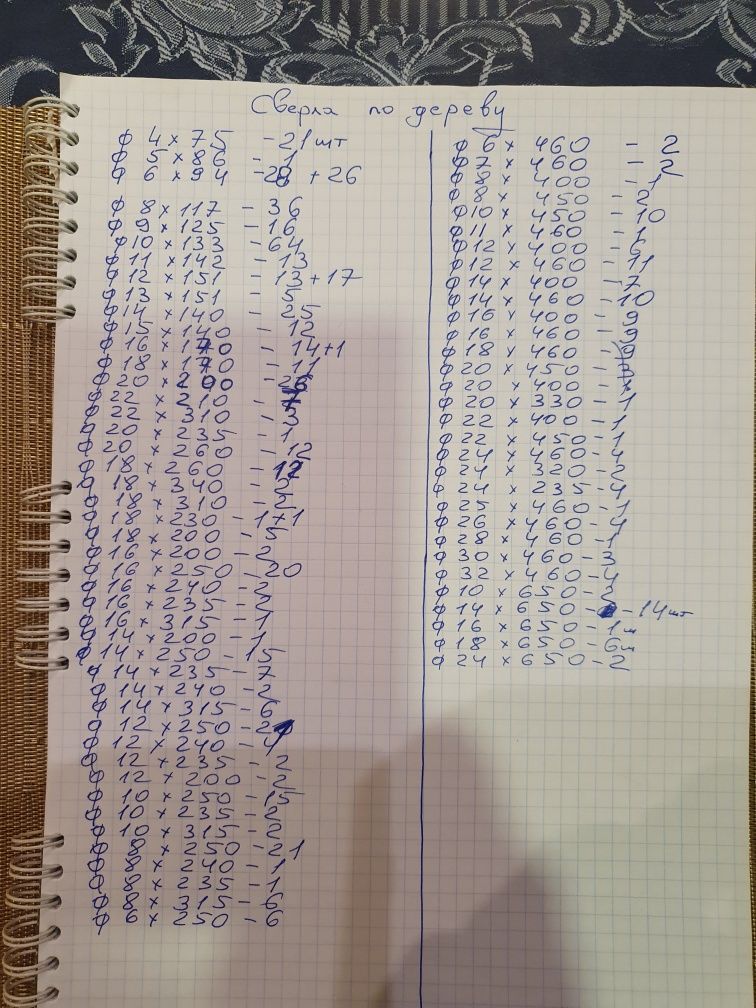 Сверла по дереву
ф 4 × 75 - 21 шт
ф 5 × 86 - 1
ф 6 × 94 - + 26
ф 8 × 117 - 36
ф 9 × 125 - 16
ф 10 × 133 - 64
ф 11 × 142 - 13
ф 12 × 151 - 13 + 17
ф 13 × 151 - 5
ф 14 × 140 - 25
ф 15 × 140 - 12
ф 16 × 170 - 14+1
ф 18 × 170 - 11
ф 20 × 200 -
ф 22 × 210 -
ф 22 × 310 -
ф 20 × 235 - 1
ф 20 × 260 - 12
ф 18 × 260 -
ф 18 × 340 - 2
ф 18 × 310 - 2
ф 18 × 230 - 1+1
ф 18 × 200 - 5
ф 16 × 200 - 2
ф 16 × 250 - 20
ф 16 × 240 - 2
ф 16 × 235 - 2
ф 16 × 315 - 1
ф 14 × 200 - 1
ф 14 × 250 - 15
ф 14 × 235 - 7
ф 14 × 240 - 2
ф 14 × 315 - 6
ф 12 × 250 -
ф 12 × 240 - 4
ф 12 × 235 - 2
ф 12 × 200 - 2
ф 10 × 250 - 15
ф 10 × 235 - 2
ф 10 × 315 - 2
ф 8 × 250 - 21
ф 8 × 240 - 1
ф 8 × 235 - 1
ф 8 × 315 - 6
ф 6 × 250 - 6
ф 6 × 460 - 2
ф 7 × 460 - 2
ф 8 × 400 - 1
ф 8 × 450 - 2
ф 10 × 450 - 10
ф 11 × 460 - 1
ф 12 × 400 - 6
ф 12 × 460 - 11
ф 14 × 400 - 7
ф 14 × 460 - 10
ф 16 × 400 - 9
ф 16 × 460 - 9
ф 18 × 460 -
ф 20 × 450 -
ф 20 × 400 -
ф 20 × 330 - 1
ф 22 × 400 - 1
ф 22 × 450 - 1
ф 24 × 460 - 4
ф 24 × 320 - 2
ф 24 × 235 - 4
ф 25 × 460 - 1
ф 26 × 460 - 4
ф 28 × 460 - 1
ф 30 × 460 - 3
ф 32 × 460 - 4
ф 10 × 650 -
ф 14 × 650 - - 14 шт
ф 16 × 650 - 1 ш
ф 18 × 650 - 6 ш
ф 24 × 650 - 2